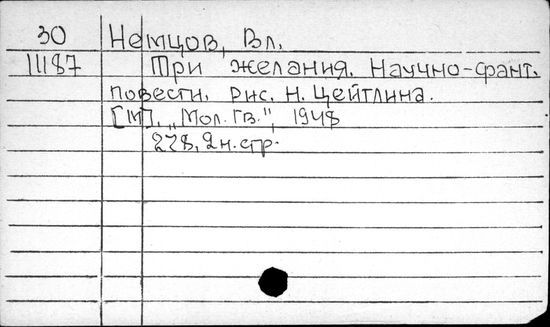 30 Немцов, Вл.
11187 Три желания. Научно-фант.
повести. Рис. Н. Цейтлина.
[М], „Мол. гв.", 1948
278, 2 н. стр.